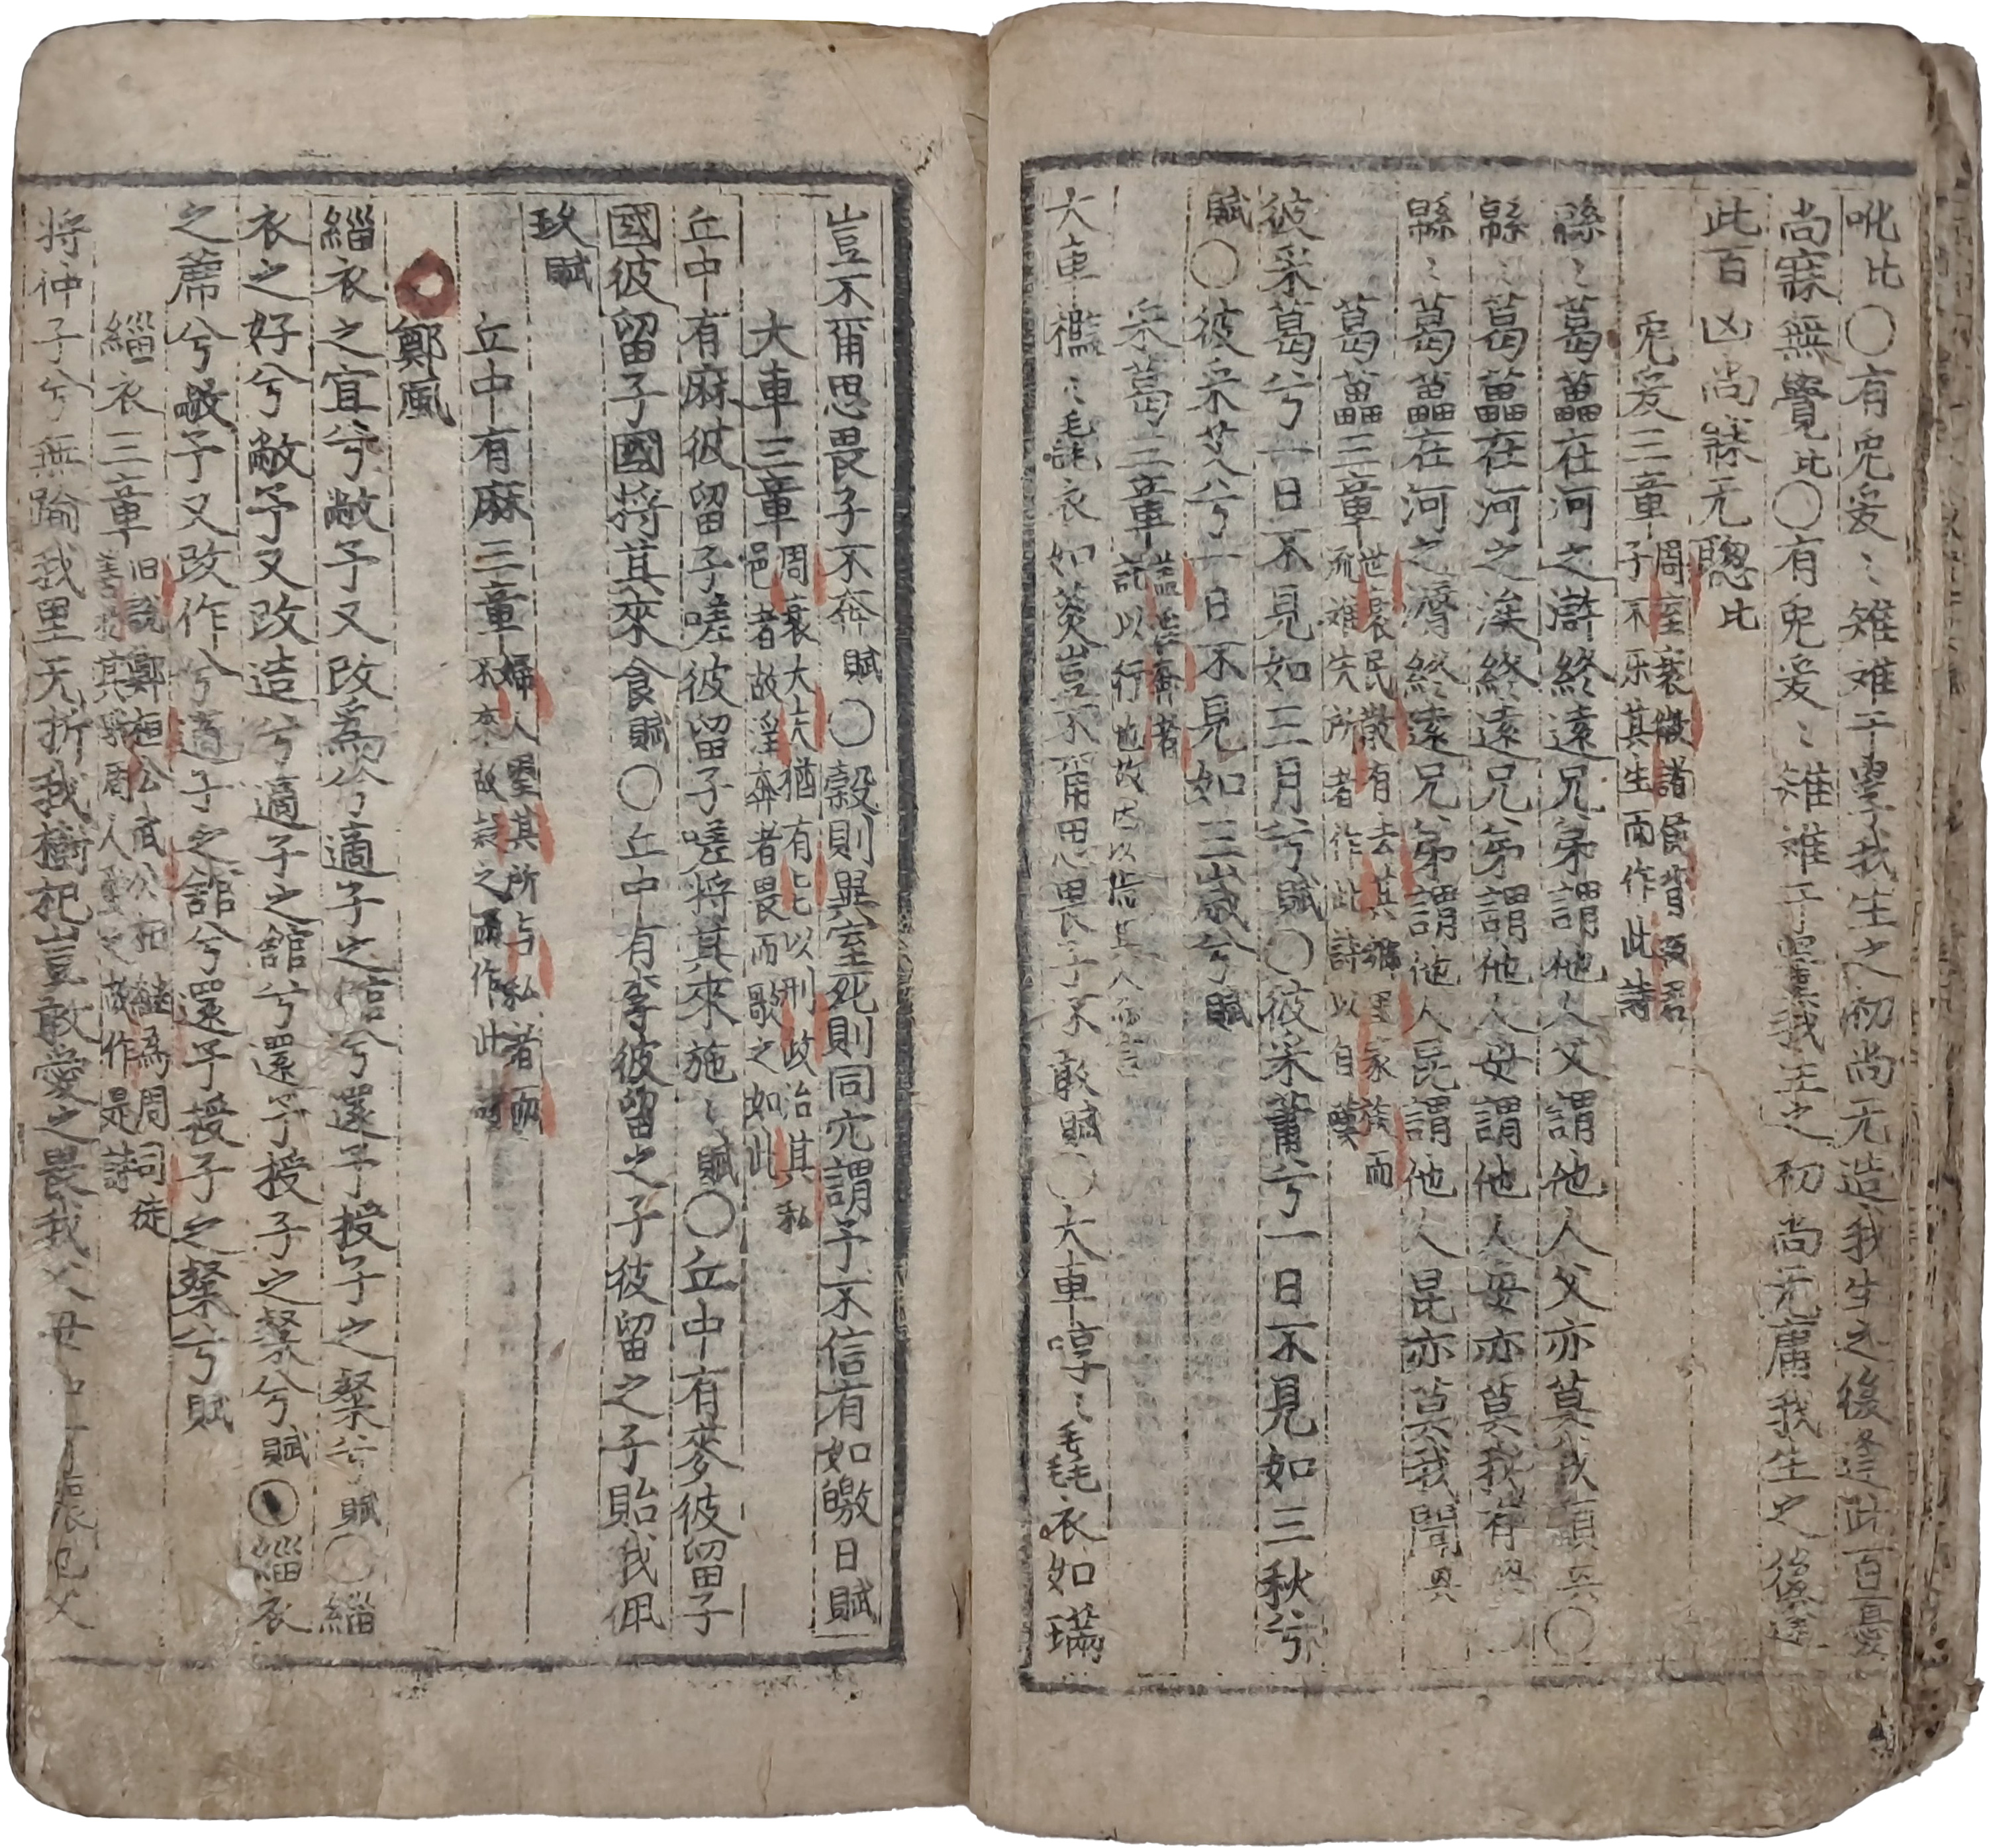 吪比〇有兎爰〻雉难于罿我生之初尚无造我生之後逢此百憂
尚寐無覺比〇有兎爰〻雉难于罿我生之初尚无庸我生之後逢
此百凶尚寐无聦比
兎爰三章周室衰微諸侯背叛君子不乐其生而作此詩
緜〻葛藟在河之滸終遠兄弟謂他人父謂他人父亦莫我顧兴〇
緜〻葛藟在河之涘終遠兄弟謂他人母謂他人母亦莫我有興
緜〻葛藟在河之漘終遠兄弟謂他人昆謂他人昆亦莫我聞興
葛藟三章世衰民散有去其鄕里家族而流难失所者作此詩以自嘆
彼采葛兮一日不見如三月兮賦〇彼采蕭兮一日不見如三秋兮
賦〇彼采艾兮一日不見如三歲兮賦
采葛三章盖淫奔者託以行也故因以指其人而言
大車檻〻毳衣如菼豈不爾思畏子不敢賦〇大車啍〻毳衣如璊
豈不爾思畏子不奔賦〇穀則異室死則同穴謂予不信有如皦日賦
大車三章周衰大夫猶有能以刑政治其私邑者故淫奔者畏而歌之如此
丘中有麻彼留子嗟彼留子嗟將其來施〻賦〇丘中有麥彼留子
國彼留子國將其來食賦〇丘中有李彼留之子彼留之子貽我佩
玖賦
丘中有麻三章婦人望其所与私者而不來故疑之而作此詩
鄭風
緇衣之宜兮敝予又改爲兮適子之舘兮還予授子之粲兮賦〇緇
衣之好兮敝予又改造兮適子之舘兮還予授子之粲兮賦〇緇衣
之蓆兮敝予又改作兮適子之舘兮還予授子之粲兮賦
緇衣三章旧說鄭桓公武公相継爲周司徒善於其职周人愛之故作是詩
將仲子兮無踰我里无折我樹杞豈敢愛之畏我父母仲可懷也父